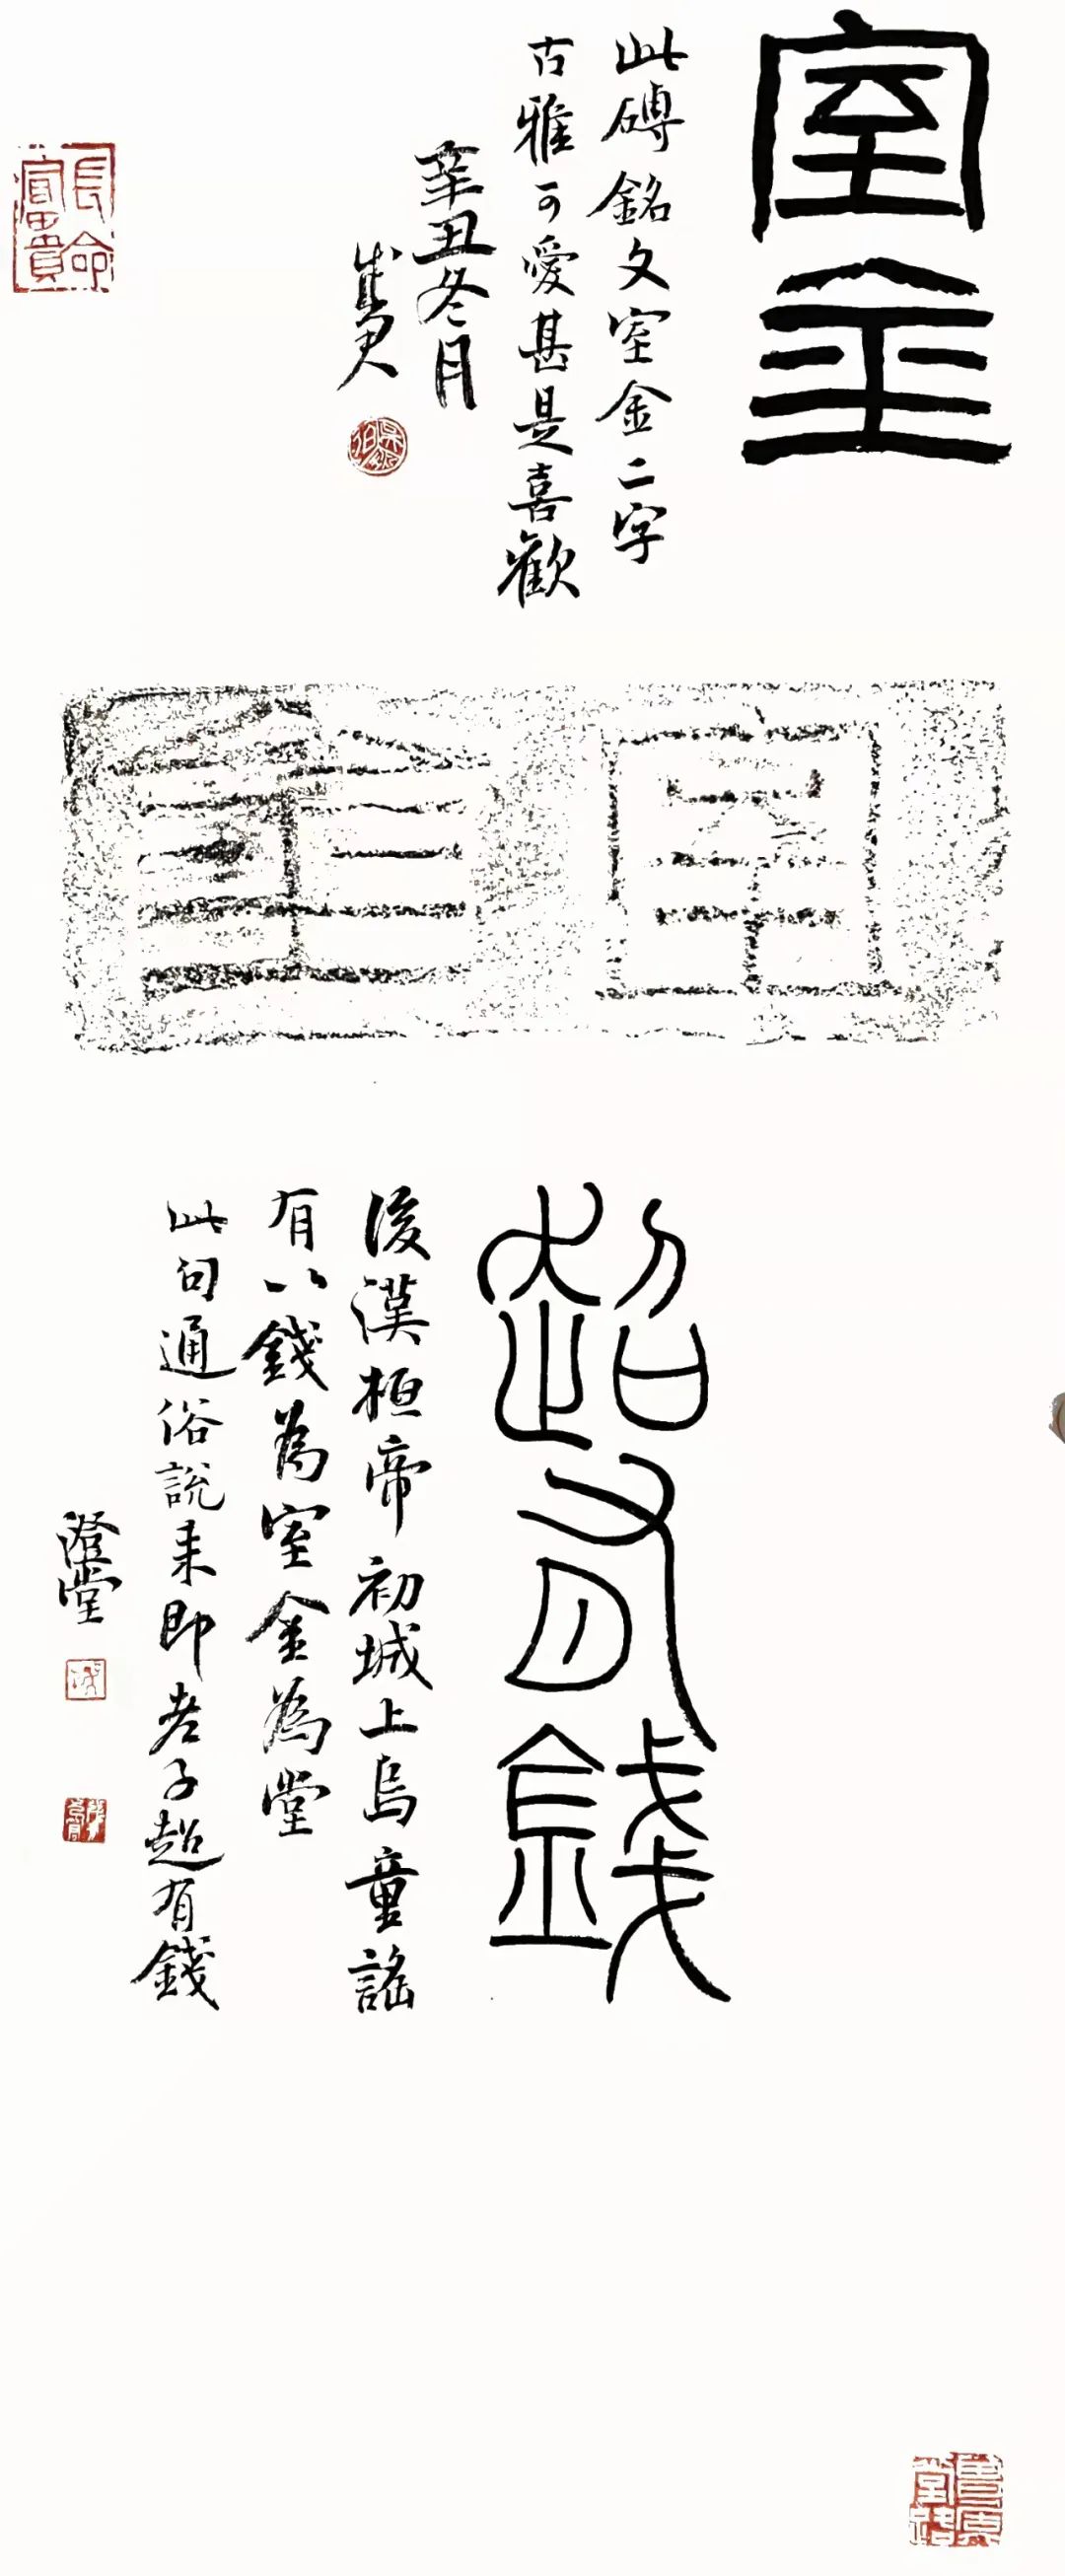 室金
此磚銘文室金二字
古雅可愛甚是喜歡
辛丑冬月
長命
富貴
室金
超有錢
後漢桓帝初城上烏童謠
有以錢為室金為堂
此句通俗說来即老子超有錢
澄堂